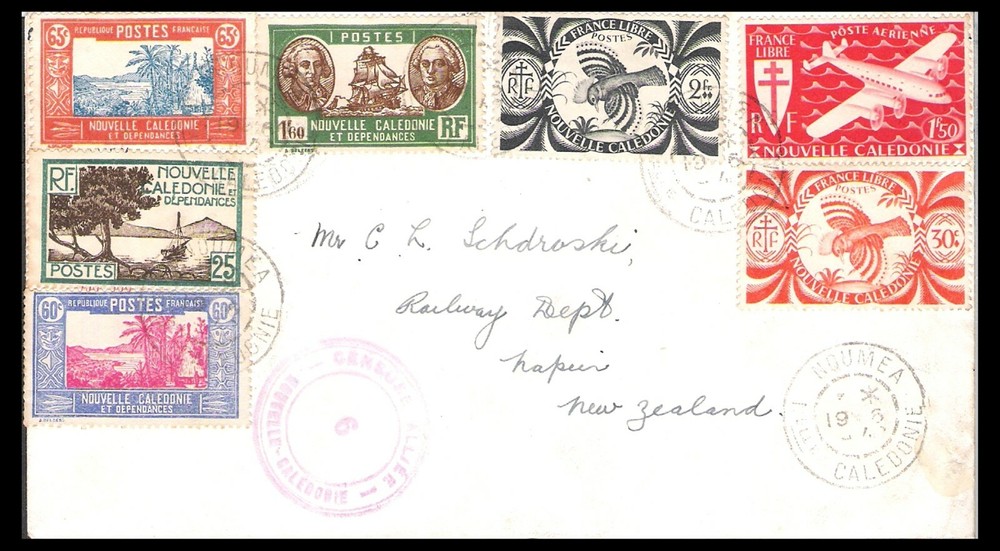 65c REPUBLIQUE POSTES FRANÇAISE 65c
NOUVELLE CALÉDONIE
ET DÉPENDANCES
POSTES
1F60 NOUVELLE CALÉDONIE RF
ET DÉPENDANCES
FRANCE LIBRE
POSTES
RF 2 Fcs
NOUVELLE CALÉDONIE
FRANCE LIBRE
POSTE AÉRIENNE
RF 1F50
NOUVELLE CALÉDONIE
RF. NOUVELLE
CALÉDONIE ET
DÉPENDANCES
POSTES 25
FRANCE LIBRE
POSTES
RF 30c
NOUVELLE CALÉDONIE
60c REPUBLIQUE POSTES FRANÇAISE 60c
NOUVELLE CALÉDONIE
ET DÉPENDANCES
Mr C. L. Schdroski,
Railway Dept.
Napier
New Zealand.
CENSURE ALLIÉE
6
NOUVELLE-CALÉDONIE
NOUMEA
19 6
CALEDONIE